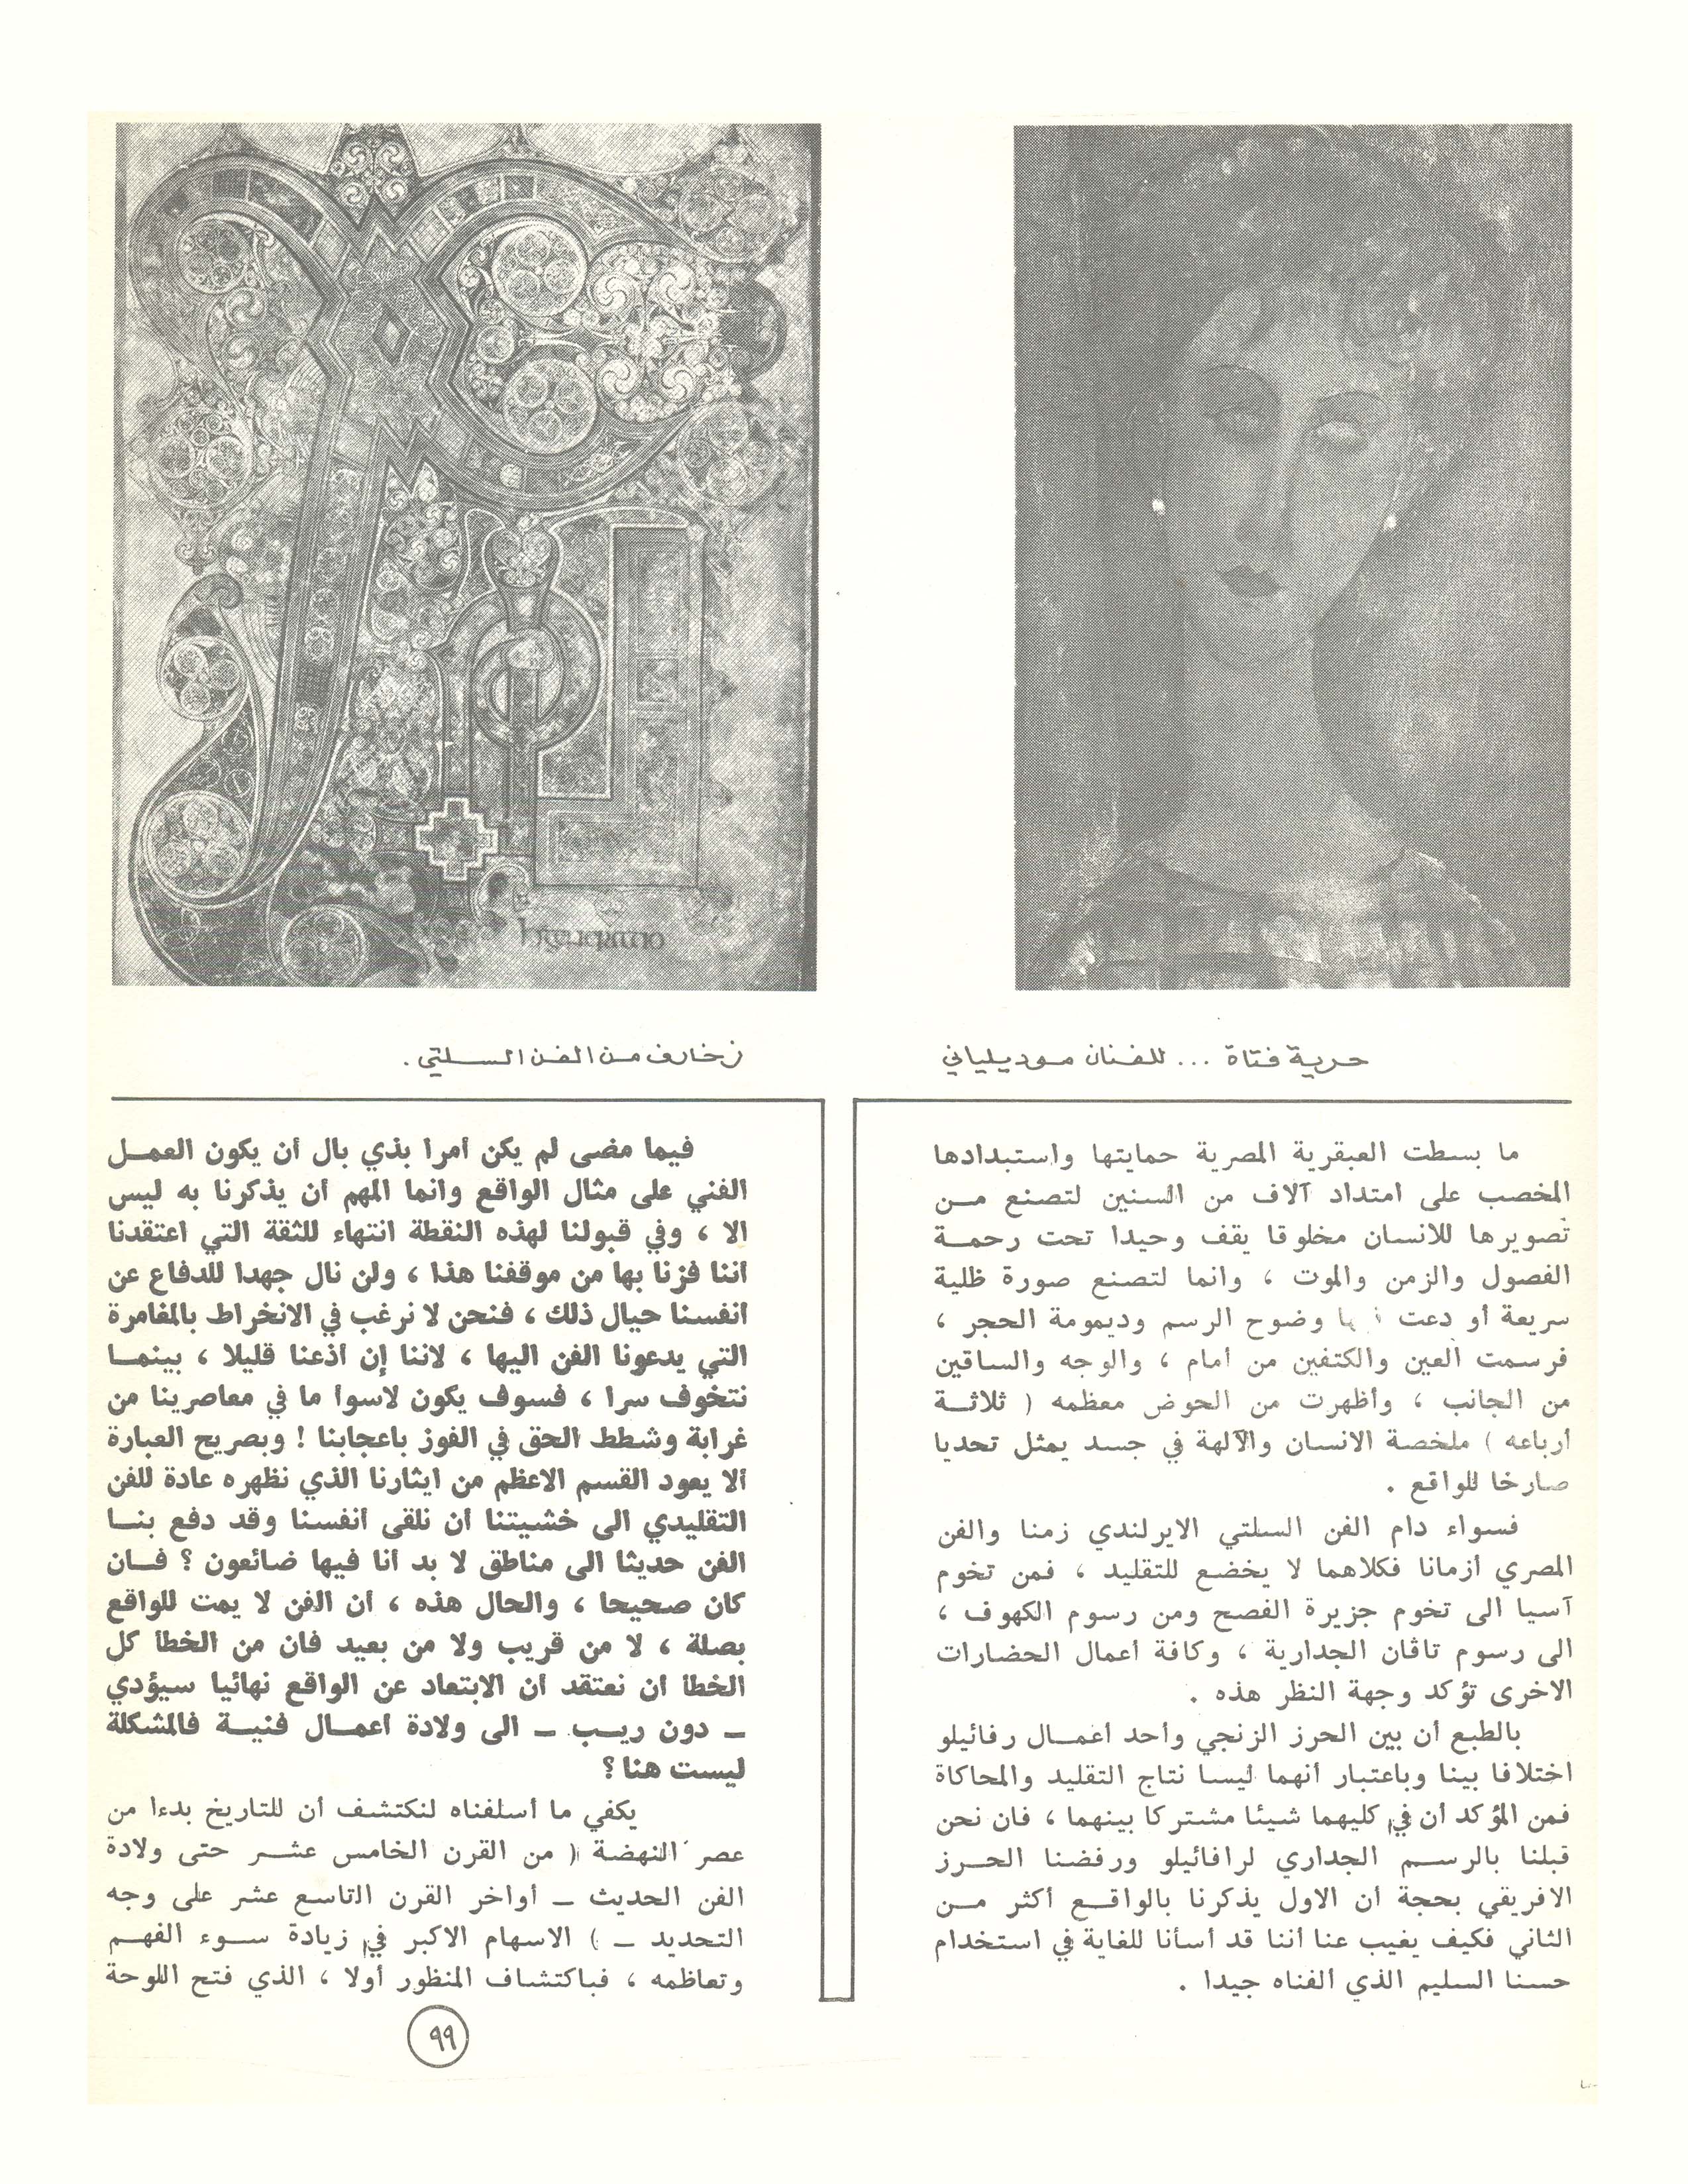 حرية فتاة ... للفنان موديلياني
زخارف من الفن السلتي .
ما بسطت العبقرية المصرية حمايتها واستبدادها
المخصب على امتداد آلاف من السنين لتصنع مـن
تصويرها للانسان مخلوقا يقف وحيدا تحت رحمـة
الفصول والزمن والموت ، وانما لتصنع صورة ظلية
سريعة أودعت وضوح الرسم وديمومة الحجر ،
فرسمت العين والكتفين من أمام ، والوجه والساقين
من الجانب ، وأظهرت من الحوض معظمه ( ثلاثـة
أرباعه ) ملخصة الانسان والآلهة في جسد يمثل تحديا
صارخا للواقع .
فسواء دام الفن السلتي الايرلندي زمنا والفن
المصري أزمانا فكلاهما لا يخضع للتقليد ، فمن تخوم
آسيا الى تخوم جزيرة الفصح ومن رسوم الكهوف ،
الى رسوم تاڤان الجدارية ، وكافة أعمال الحضارات
الاخرى تؤكد وجهة النظر هذه .
بالطبع أن بين الحرز الزنجي وأحد أعمـال رفائيلو
اختلافا بينا وباعتبار أنهما ليسا نتاج التقليد والمحاكاة
فمن المؤكد أن في كليهما شيئا مشتركا بينهما ، فان نحن
قبلنا بالرسـم الجداري لرافائيلو ورفضنا الحـرز
الافريقي بحجة أن الاول يذكرنا بالواقـع أكثر مـن
الثاني فكيف يغيب عنا أننا قد أسأنا للغاية في استخدام
حسنا السليم الذي ألفناه جيدا .
فيما مضى لم يكن أمرا بذي بال أن يكون العمـل
الفني على مثال الواقع وانما المهم أن يذكرنا به ليس
الا ، وفي قبولنا لهذه النقطة انتهاء للثقة التي اعتقدنا
أننا فزنا بها من موقفنا هذا ، ولن نال جهدا للدفاع عن
أنفسنا حيال ذلك ، فنحن لا نرغب في الانخراط بالمغامرة
التي يدعونا الفن اليها ، لاننا إن أذعنا قليلا ، بينمـا
نتخوف سرا ، فسوف يكون لاسوأ ما في معاصرينا من
غرابة وشطط الحق في الفوز باعجابنا ! وبصريح العبارة
ألا يعود القسم الاعظم من ايثارنا الذي نظهره عادة للفن
التقليدي الى خشيتنا أن نلقى أنفسنا وقد دفع بنـا
الفن حديثا الى مناطق لا بد أنا فيها ضائعون ؟ فـان
كان صحيحا ، والحال هذه ، أن الفن لا يمت للواقع
بصلة ، لا من قريب ولا من بعيد فان من الخطأ كل
الخطأ أن نعتقد أن الابتعاد عن الواقع نهائيا سيؤدي
ـ دون ريـب ـ الى ولادة أعمـال فنيـة فالمشكلة
ليست هنا ؟
يكفي ما أسلفناه لنكتشف أن للتاريخ بدءا من
عصر النهضة ( من القرن الخامس عشـر حتى ولادة
الفن الحديث ـ أواخر القرن التاسع عشر على وجه
التحديد ـ ) الاسهام الاكبر في زيادة سـوء الفهـم
وتعاظمه ، فباكتشاف المنظور أولا ، الذي فتح اللوحة
٩٩